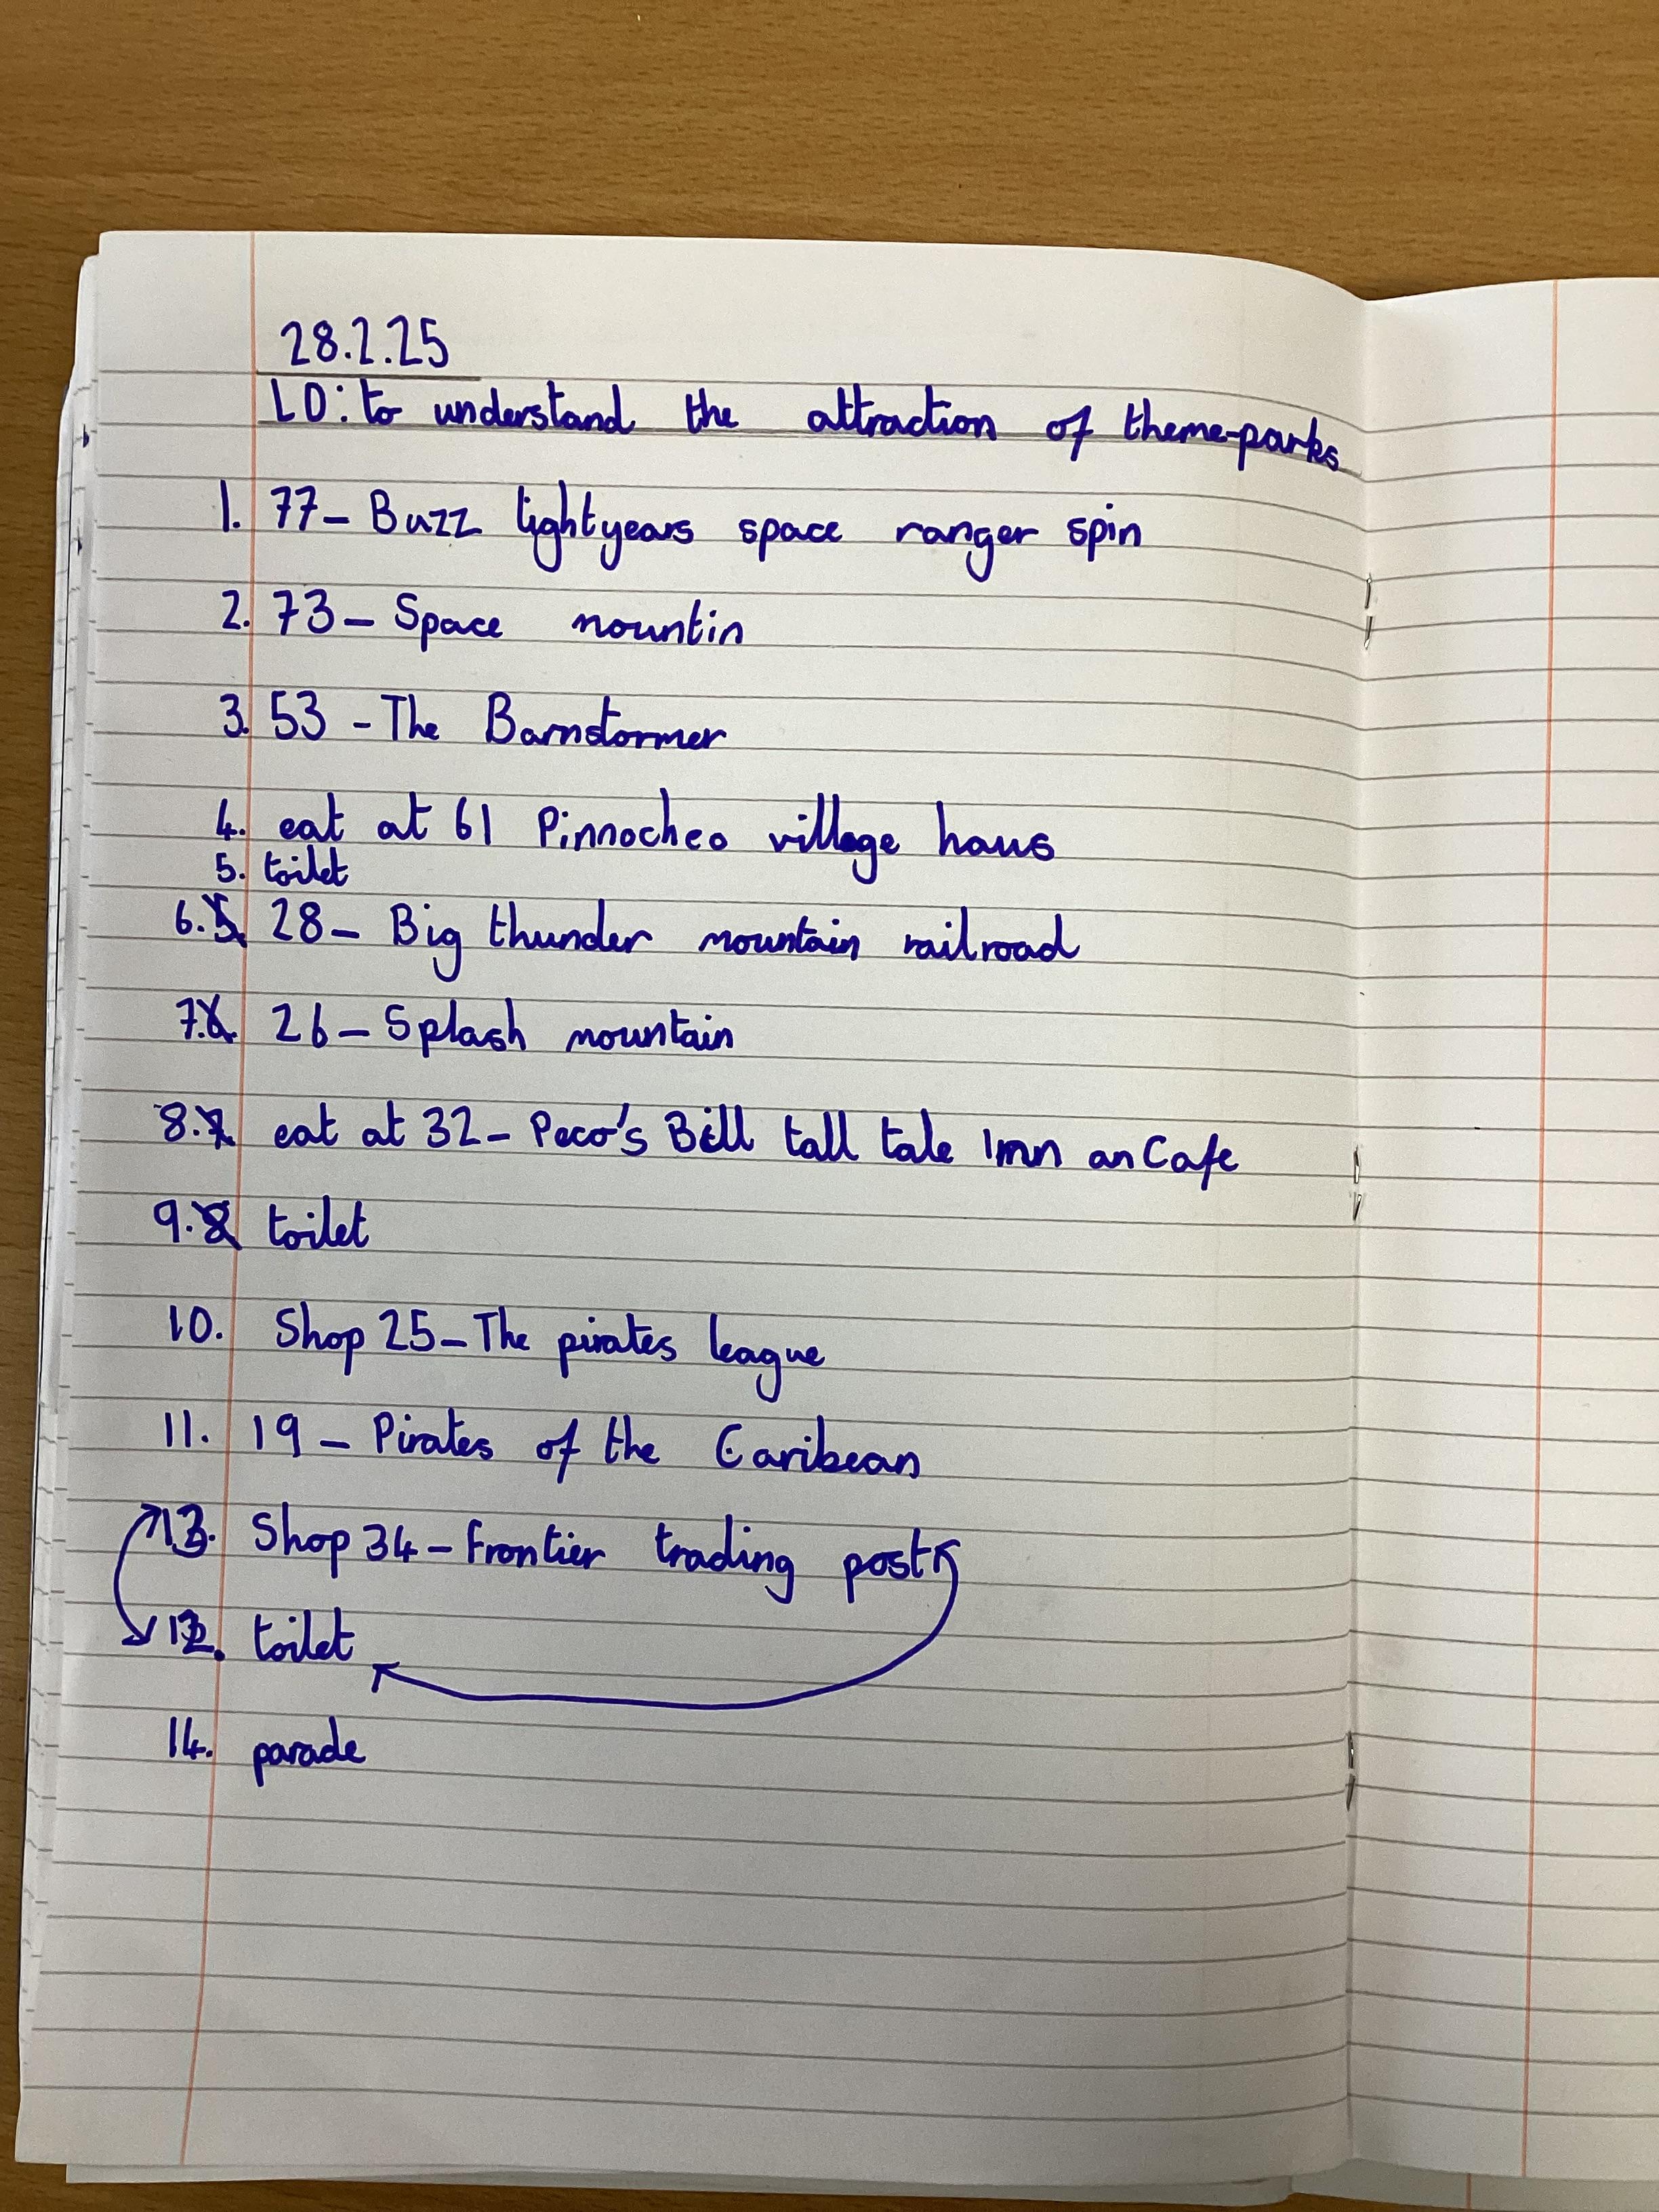 28.2.25
LO: to understand the attraction of theme-parks
1. 77- Buzz lightyears space ranger spin
2. 73- Space mountin
3. 53 - The Barnstormer
4. eat at 61 Pinnocheo village haus
5. toilet
6. 28- Big thunder mountain railroad
7. 26- Splash mountain
8. eat at 32- Peco's Bill tall tale Inn an Cafe
9. toilet
10. Shop 25-The pirates league
11. 19- Pirates of the Caribean
13. Shop 34-Frontier trading post
12. toilet
14. parade